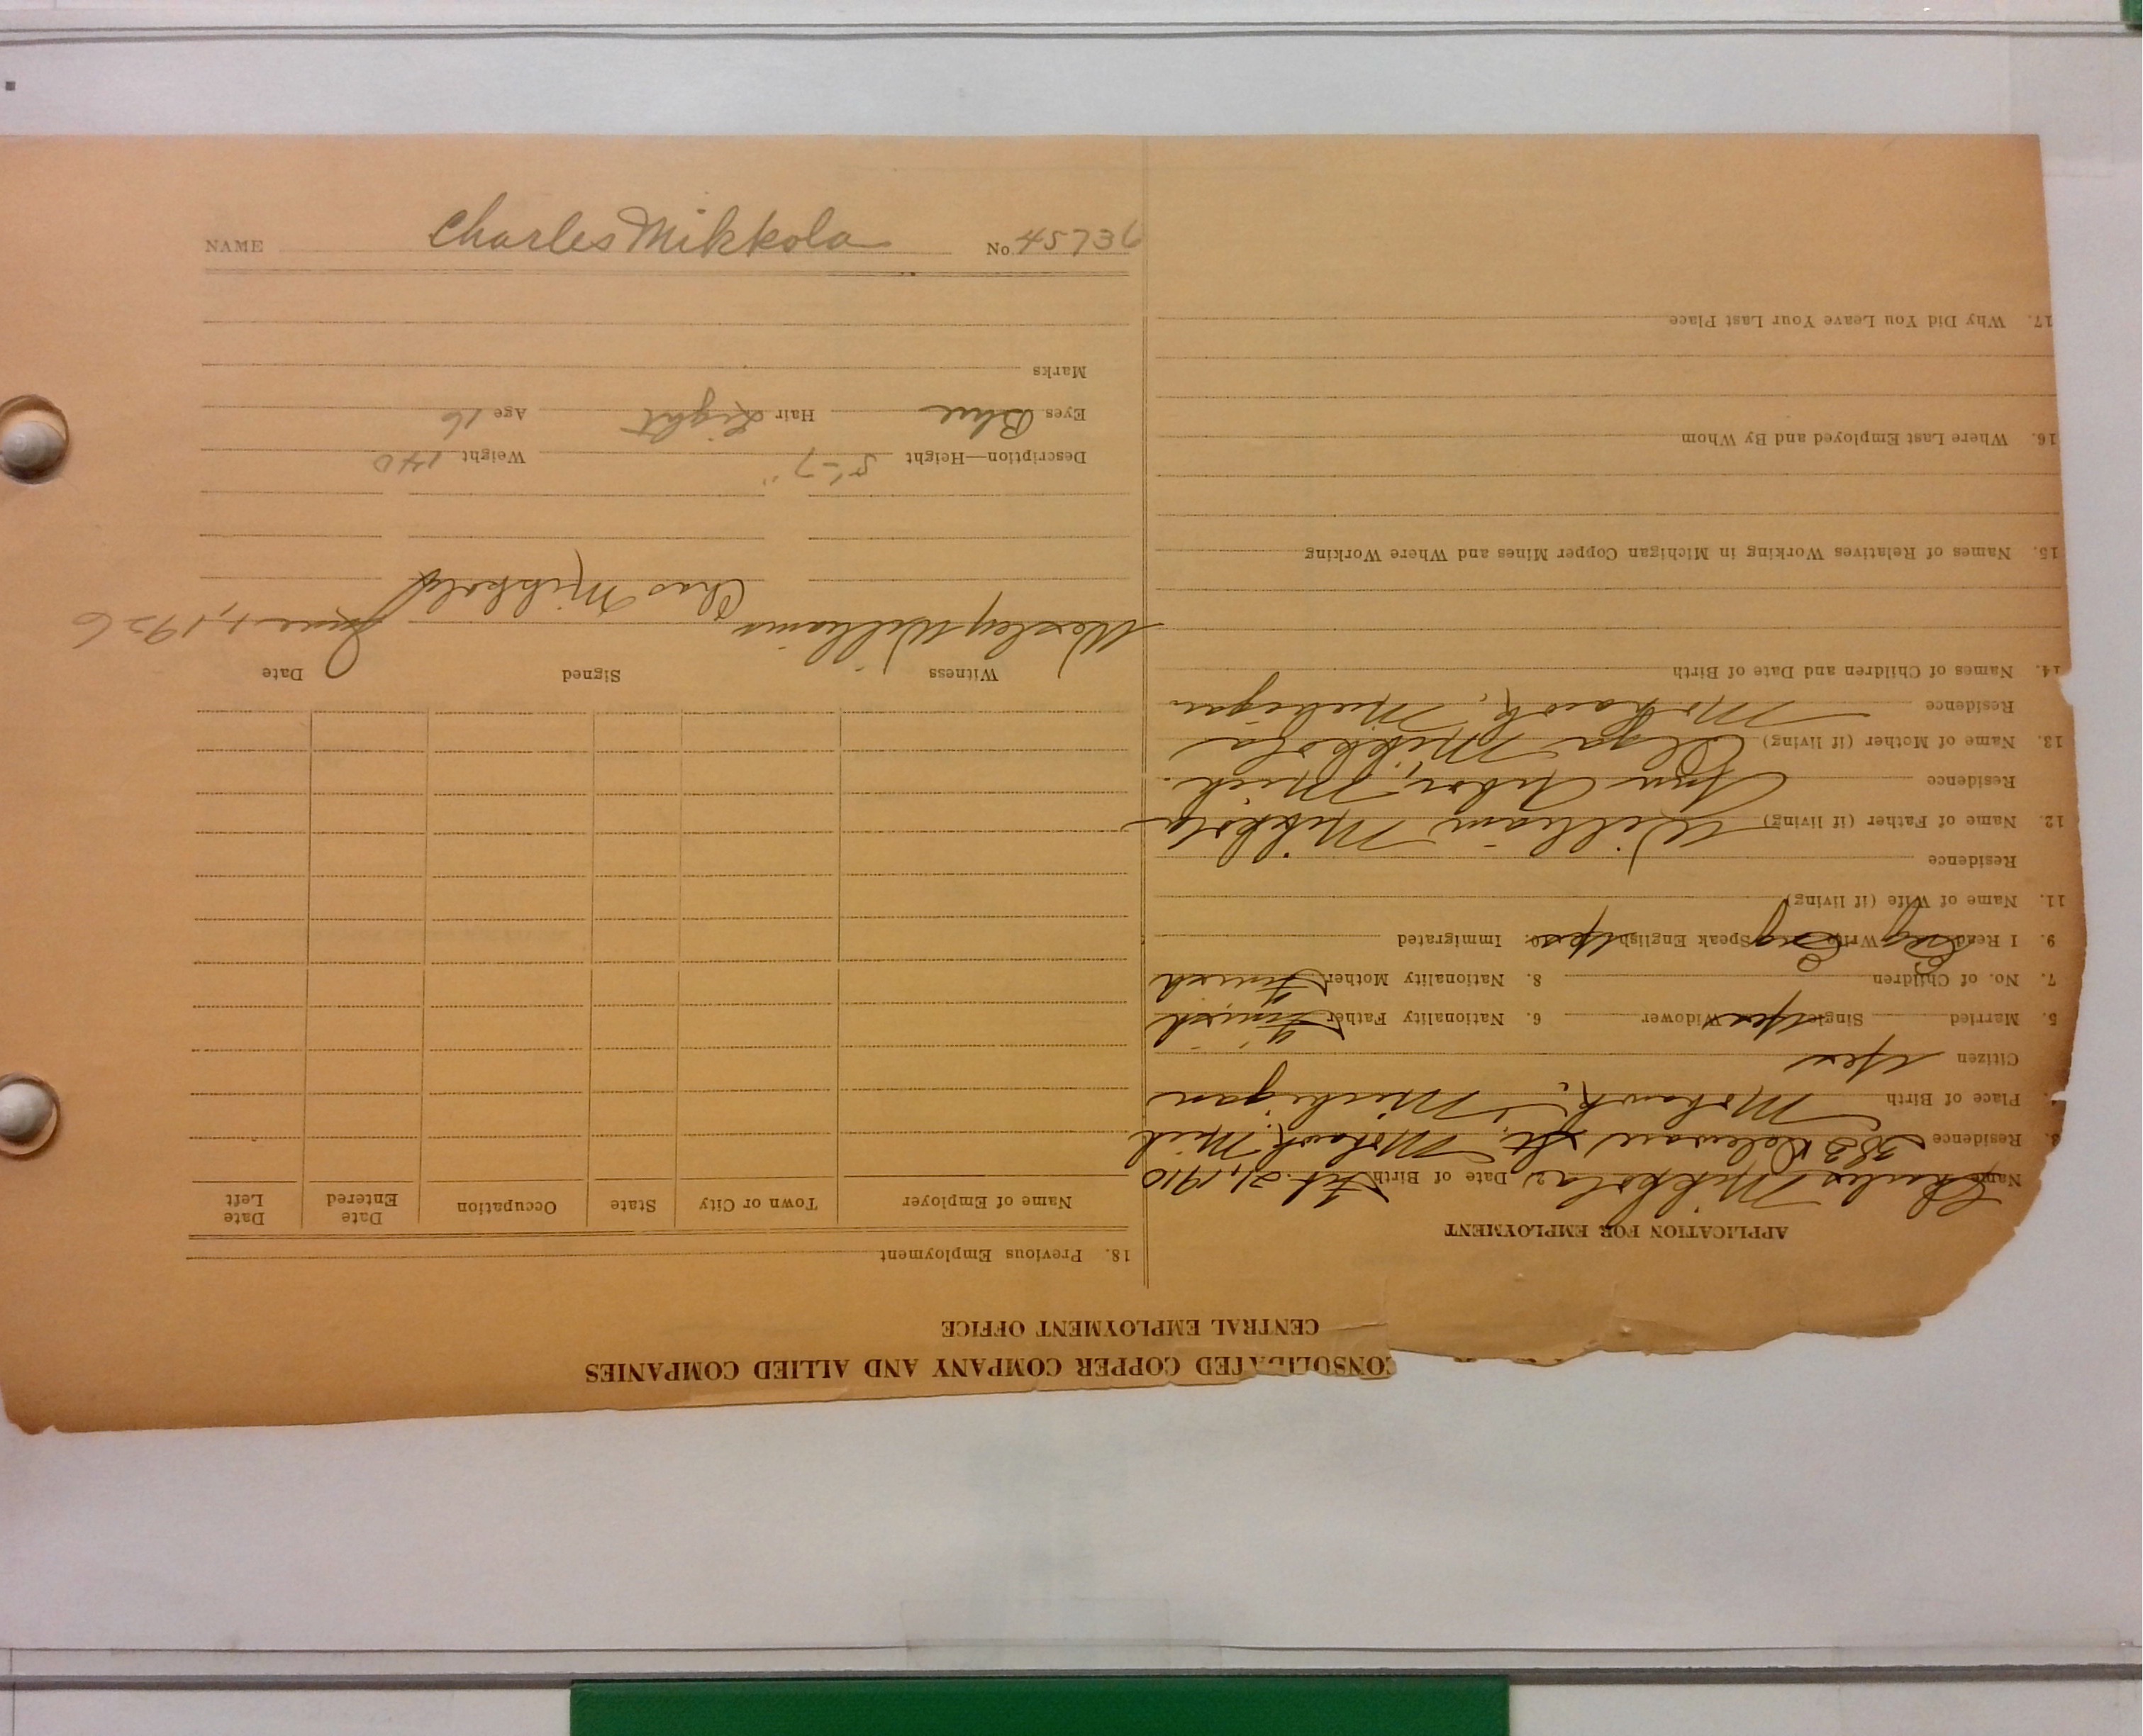 ONSOLIDATED COPPER COMPANY AND ALLIED COMPANIES
CENTRAL EMPLOYMENT OFFICE
APPLICATION FOR EMPLOYMENT
Name Charles Mikkola 2. Date of Birth Feb. 21, 1910
3. Residence Delaware St., Mohawk, Mich
4. Place of Birth Mohawk, Michigan
Citizen Yes
5. Married Single Yes Widower 6. Nationality Father Finish
7. No. of Children 8. Nationality Mother Finish
9. I Read Eng Write Eng Speak English Yes 10. Immigrated
11. Name of Wife (if living)
Residence
12. Name of Father (if living) William Mikkola
Residence Ann Arbor, Mich.
13. Name of Mother (if living) Olga Mikkola
Residence Mohawk, Michigan
14. Names of Children and Date of Birth
15. Names of Relatives Working in Michigan Copper Mines and Where Working
16. Where Last Employed and By Whom
17. Why Did You Leave Your Last Place
18. Previous Employment
Name of Employer Town or City State Occupation Date Entered Date Left
Witness Signed Date
Wesley Williams Chas Mikkola June 1, 1926
Description—Height 5'-7" Weight 140
Eyes Blue Hair Light Age 16
Marks
NAME Charles Mikkola No. 45736